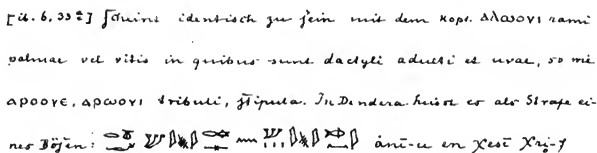 [ib. 6, 33 a] scheint identisch zu sein mit dem kopt. ⲁⲗⲱⲟⲩⲓ rami
palmae vel vitis in quibus sunt dactyli adulti et uvae, so wie
ⲁⲣⲟⲟⲩⲉ, ⲁⲣⲱⲟⲩⲓ tribuli, stipula. In Dendera heisst es als Strafe ei-
nes Bösen: ånt-u en χest χri-f